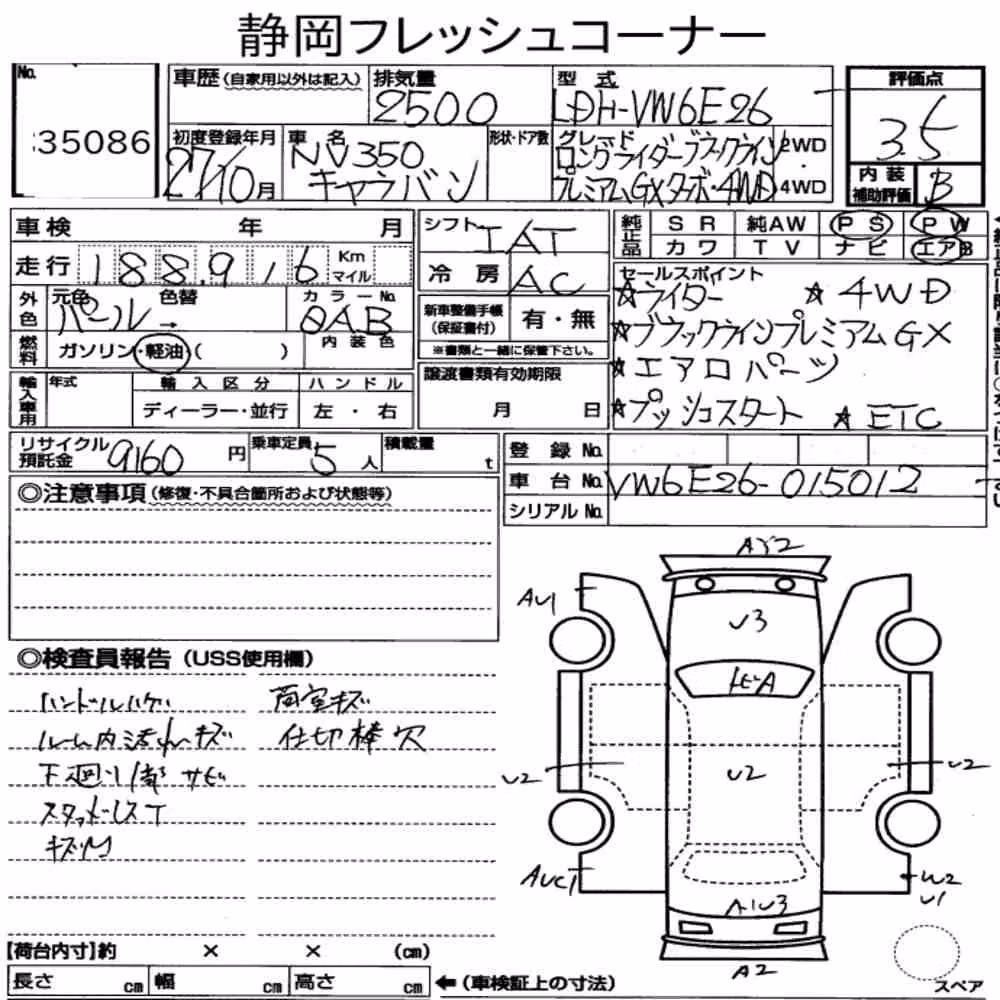 静岡フレッシュコーナー
No.
35086
車歴(自家用以外は記入)
排気量
2500
型式
LDH-VW6E26
評価点
3.5
初度登録年月
27/10月
車名
NV350
キャラバン
形状・ドア数
グレード
ロングライダーブラックライン
プレミアムGXターボ・4WD
2WD
4WD
内装
補助評価
B
車検 年 月
シフト
IAT
純正品
SR 純AW PS PW
カワ TV ナビ エアB
走行 188,916 Km マイル
冷房
AC
セールスポイント
☆ライダー ☆4WD
☆ブラックラインプレミアムGX
☆エアロパーツ
☆プッシュスタート ☆ETC
外色
元色 色替
パール→
カラーNo.
QAB
内装色
新車整備手帳
(保証書付)
有・無
※書類と一緒に保管下さい。
燃料
ガソリン・軽油・( )
輸入車用
年式
輸入区分
ディーラー・並行
ハンドル
左・右
譲渡書類有効期限
月 日
リサイクル
預託金
9160円
乗車定員
5人
積載量
t
登録No.
車台No.
VW6E26-015012
シリアルNo.
◎注意事項(修復・不具合箇所および状態等)
◎検査員報告(USS使用欄)
ハンドルハゲ
ルーム内汚れキズ
下廻り部サビ
スタッドレスT
荷室キズ
仕切棒欠
AY2
AU1
U3
トビA
U2
U2
U2
AUCT
W2
U1
A1U3
A2
スペア
【荷台内寸】約 × × (cm)
長さ cm 幅 cm 高さ cm
←(車検証上の寸法)